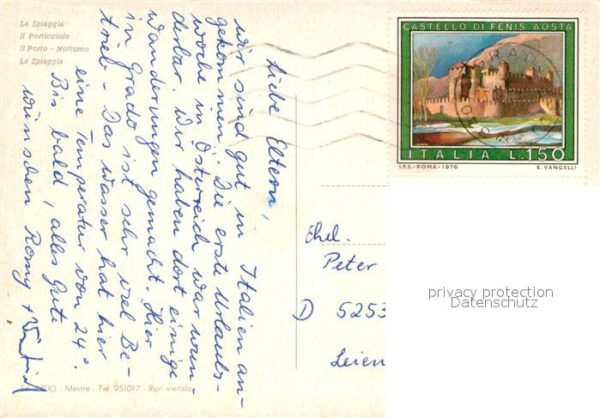 La Spiaggia
Il Porticciolo
Il Porto - Notturno
La Spiaggia
Liebe Eltern,
wir sind gut in Italien an-
gekommen. Die erste Urlaubs-
woche in Österreich war wun-
derbar. Wir haben dort einige
Wanderungen gemacht. Hier
in Grado ist sehr viel Be-
trieb - Das Wasser hat hier
eine Temperatur von 24°.
Bis bald, alles Gute
wünschen Romy +
Mestre - Tel. 951017 - Ripr. vietata
CASTELLO DI FENIS, AOSTA
ITALIA L.150
I.P.S. - ROMA - 1976 E. VANGELLI
Ehel.
Peter
D 5253
privacy protection
Datenschutz